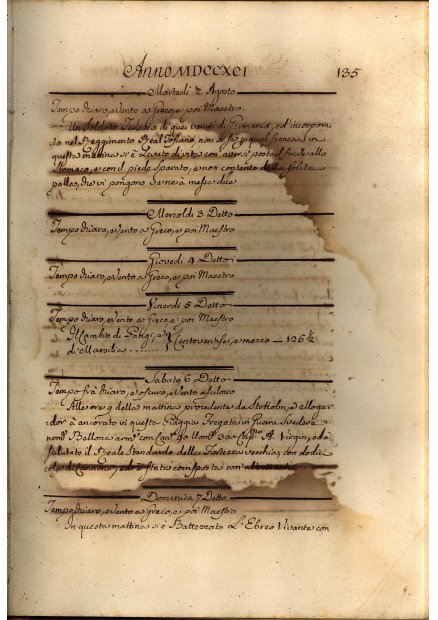 ANNO MDCCXCI 135
Martedì 2 Agosto
Tempo chiaro, e Vento a Greco, e poi Maestro
Un Soldato Tedesco di quei venuti di Germania, ed'incorpora
to nel Reggimento Real Toscano, non si sà per qual frenesia in
questa mattina si è Levato di vita con aversi posto il fucile allo
Stomaco, e con il piede Sparato, e non contento della solita
palla, che vi pongono Se ne à messe due
Mercoldì 3 Detto
Tempo chiaro, e Vento a Greco, e poi Maestro
Giovedì 4 Detto
Tempo chiaro, e Vento a Greco, e poi Maestro
Venerdì 5 Detto
Tempo chiaro, e Vento a Greco, e poi Maestro
Il Cambio di Parigi, e
di Marsilia Centoventisei, e mezzo — 126 ½
Sabato 6 Detto
Tempo frà chiaro, e oscuro, e Vento a
Alle ore 9 della mattina procedente da Stokolm, e
è ancorato in questa Piaggia Fregata in Guerra Svedese
nom. Bellona arm. con Can. 40 Uom. 300 Cap. A. Virgin, ed à
salutato il Reale Stendardo della Fortezza Vecchia, con dodici
colpi di Cannone, ed è stata corrisposta con
Domenica 7 Detto
Tempo chiaro, e Vento a Greco, e poi Maestro
In questa mattina si è Battezzato L'Ebreo Vivante con